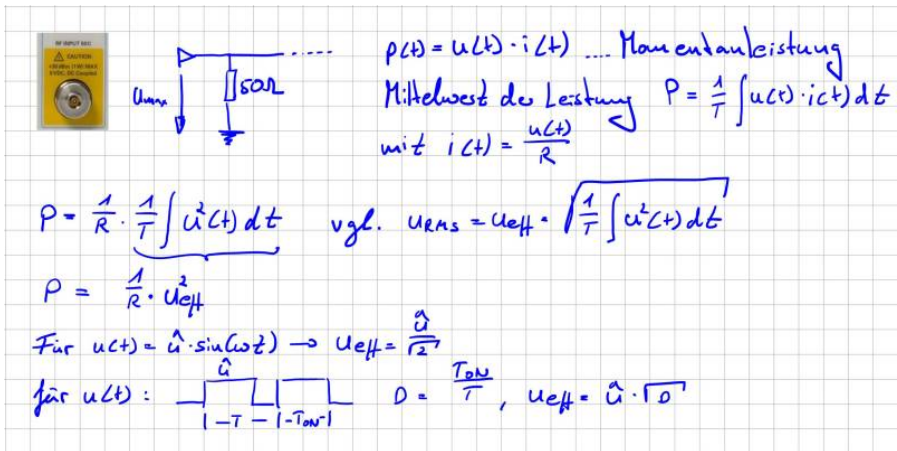 RF INPUT 50Ω
CAUTION
+30 dBm (1W) MAX
0 VDC, DC Coupled
Umax
50Ω
p(t) = u(t) · i(t) .... Momentanleistung
Mittelwert der Leistung P = 1/T ∫ u(t) · i(t) dt
mit i(t) = u(t)/R
P = 1/R · 1/T ∫ u²(t) dt vgl. uRMS = ueff = √(1/T ∫ u²(t) dt)
P = 1/R · u²eff
Für u(t) = û · sin(ωt) → ueff = û/√2
für u(t): û |-T-|-TON-| D = TON/T, ueff = û · √D